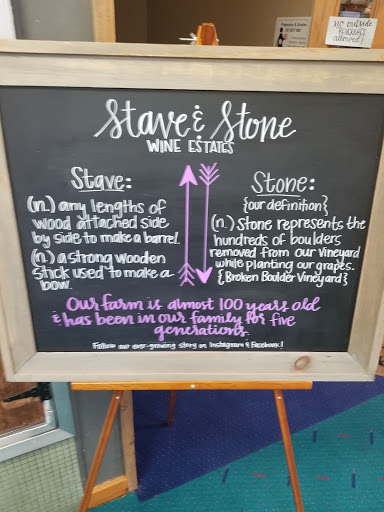 Pregnancy & Alcohol
DO NOT MIX
NO OUTSIDE
BEVERAGES
allowed!
Stave & Stone
WINE ESTATES
Stave:
(n.) any lengths of
wood attached side
by side to make a barrel.
(n.) a strong wooden
stick used to make a
bow.
Stone:
{our definition}
(n.) Stone represents the
hundreds of boulders
removed from our Vineyard
while planting our grapes.
{Broken Boulder Vineyard}
Our farm is almost 100 years old
& has been in our family for five
generations.
Follow our ever-growing story on Instagram & Facebook!